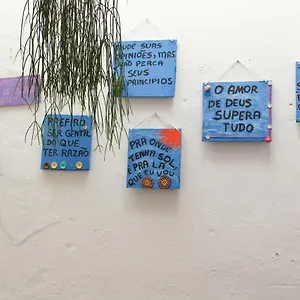 MUDE SUAS
OPINIÕES, MAS
NÃO PERCA
SEUS
PRINCIPIOS
O AMOR
DE DEUS
SUPERA
TUDO
PREFIRO
SER GENTIL
DO QUE
TER RAZÃO
PRA ONDE
TENHA SOL,
É PRA LÁ
QUE EU VOU